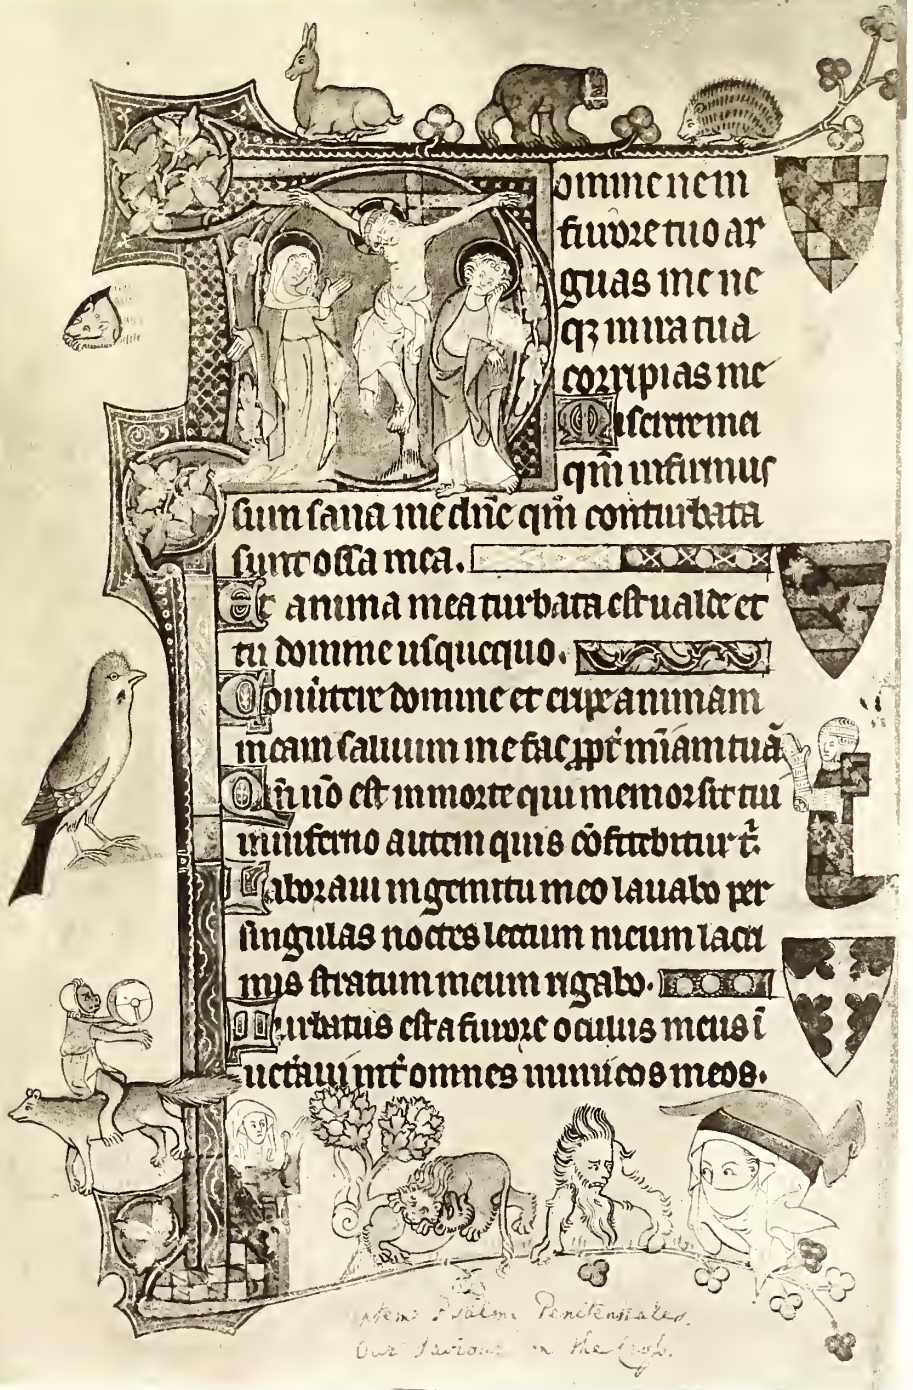 omine ne in
furore tuo ar
guas me ne
qꝫ in ira tua
corripias me
Miserere mei
qm̄ infirmus
sum sana me dn̄e qm̄ conturbata
sunt ossa mea.
Et anima mea turbata est ualde et
tu domine usquequo.
Conu̾tere domine et eripe animam
meam saluum me fac ꝓpt̾ mīam tuā
Qm̄ nō est in morte qui memor sit tui
in inferno autem quis cōfitebitur t̾.
Laboraui in gemitu meo lauabo per
singulas noctes lectum meum lacri
mis stratum meum rigabo.
Turbatus est a furore oculus meus ī
uet̾aui int̾ omnes inimicos meos.
Septem Psalmi Penitentiales.
Our Saviour on the Cross.